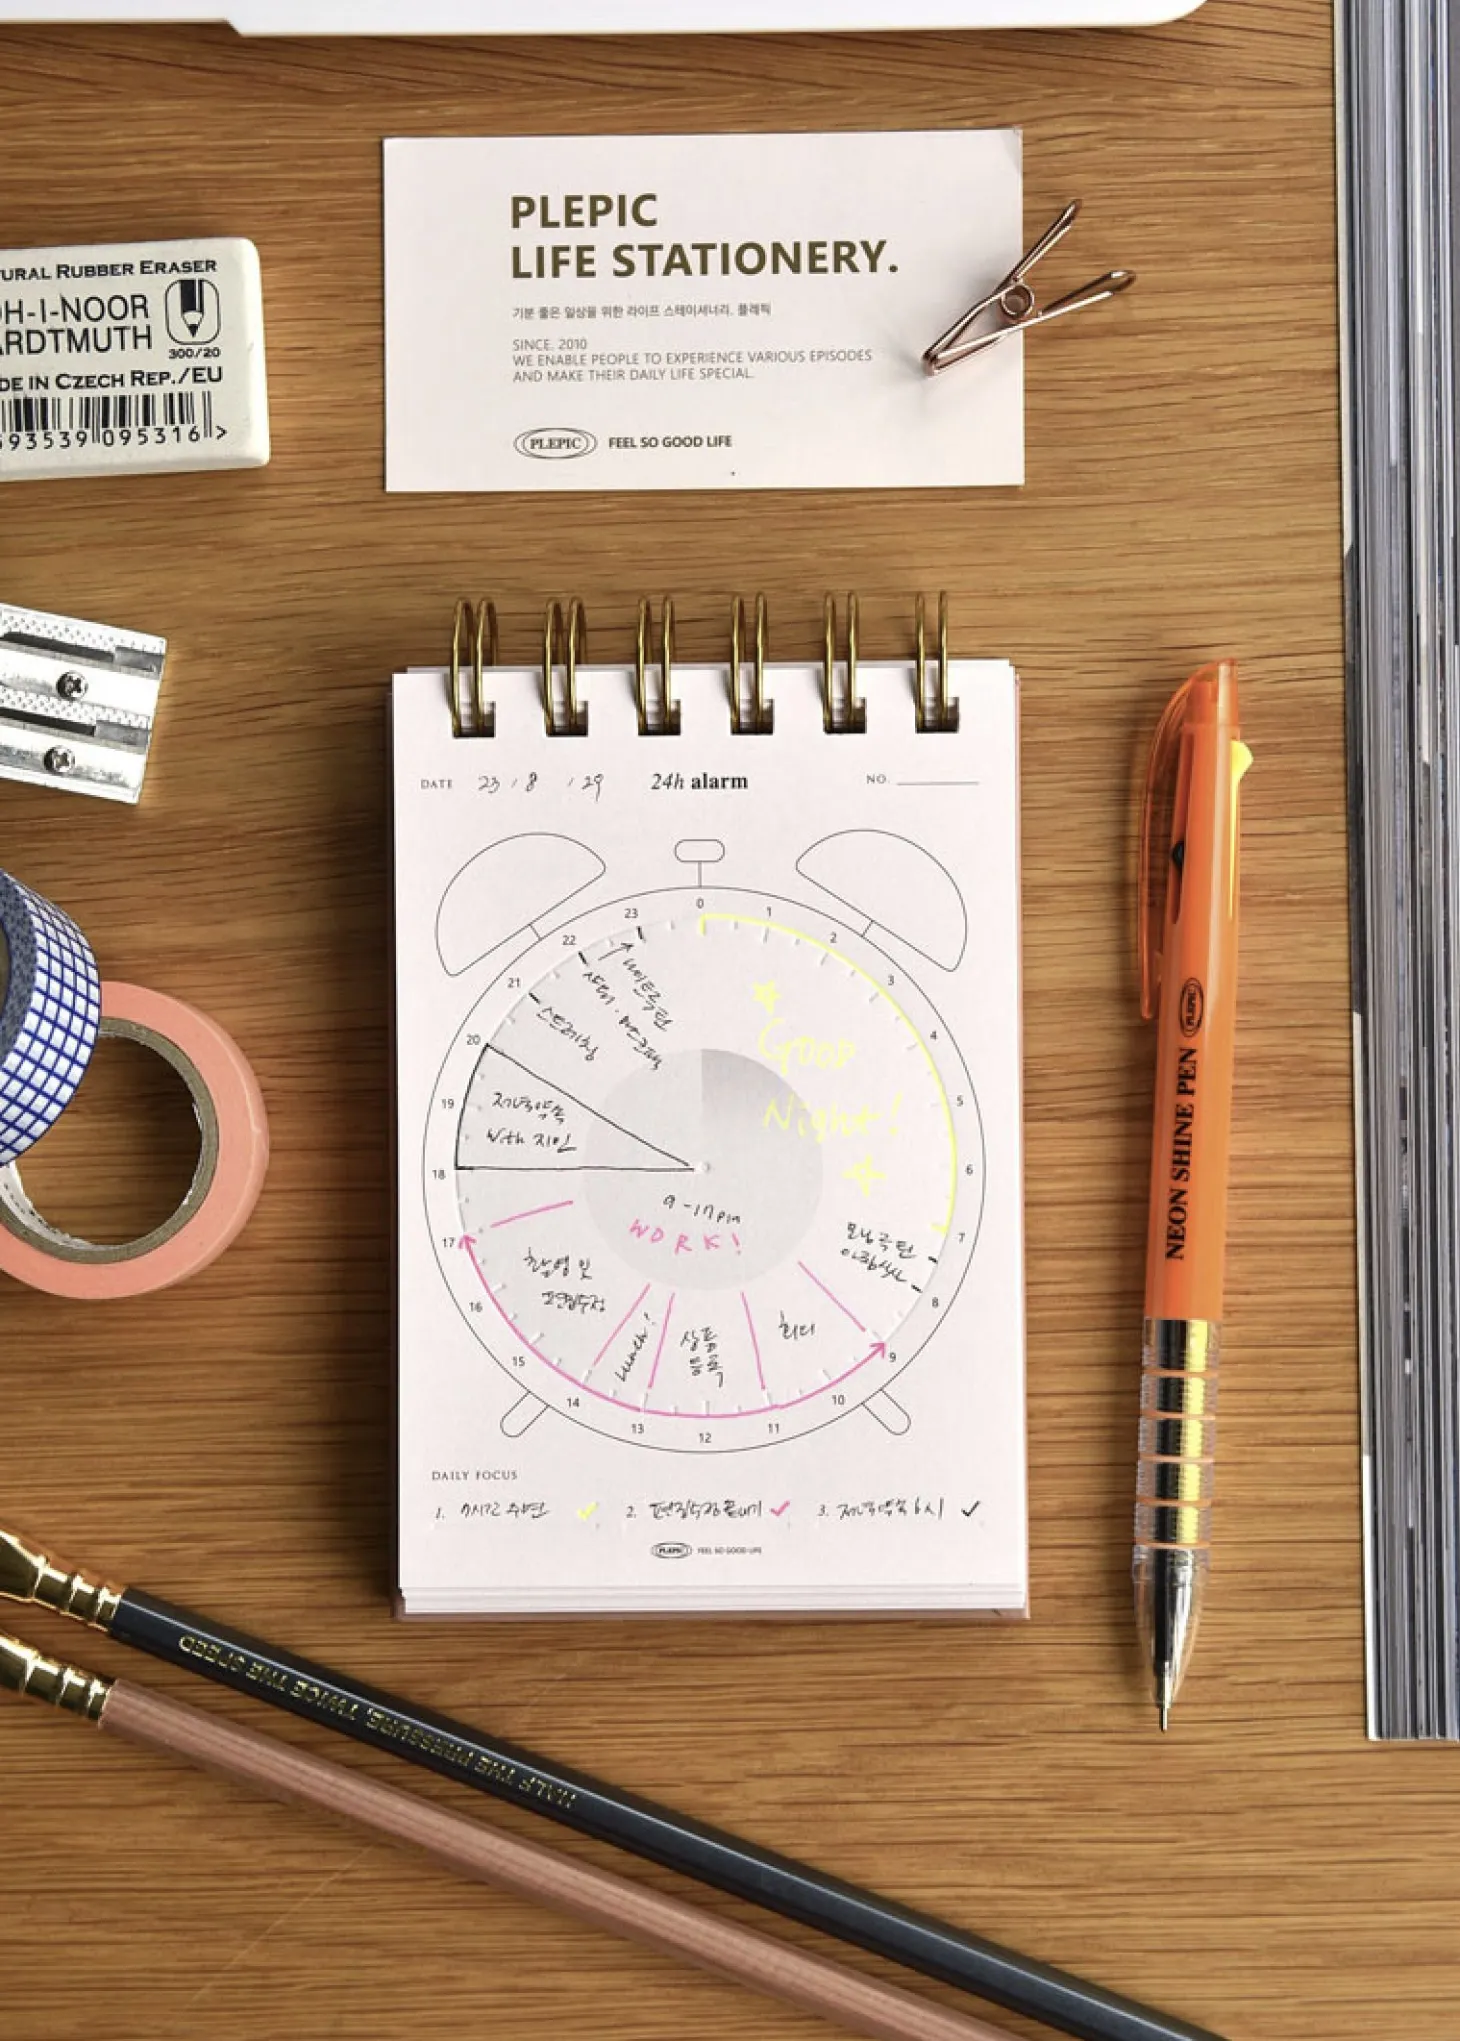 PLEPIC
LIFE STATIONERY.
기분 좋은 일상을 위한 라이프 스테이셔너리. 플레픽
SINCE. 2010
WE ENABLE PEOPLE TO EXPERIENCE VARIOUS EPISODES
AND MAKE THEIR DAILY LIFE SPECIAL.
PLEPIC FEEL SO GOOD LIFE
TURAL RUBBER ERASER
OH-I-NOOR
ARDTMUTH
300/20
DE IN CZECH REP./EU
593539 095316 >
DATE 23 / 8 / 29 24h alarm NO.
0
1
2
3
4
5
6
7
8
9
10
11
12
13
14
15
16
17
18
19
20
21
22
23
Good
Night!
모닝루틴
아침식사
회의
상품
등록
Lunch!
촬영 및
편집수정
9-17pm
WORK!
저녁약속
with 지인
스트레칭
나이트루틴
DAILY FOCUS
1. 7시간 수면 2. 편집수정 끝내기 3. 저녁약속 6시
PLEPIC FEEL SO GOOD LIFE
PLEPIC
NEON SHINE PEN
HALF THE PRESSURE, TWICE THE SPEED